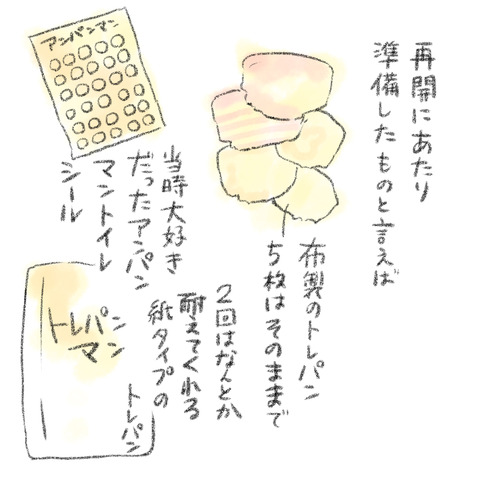 再開にあたり
準備したものと言えば
布製のトレパン
5枚はそのままで
2回はなんとか
耐えてくれる
紙タイプの
トレパン
トレパン
マン
アンパンマン
当時大好き
だったアンパン
マントイレ
シール